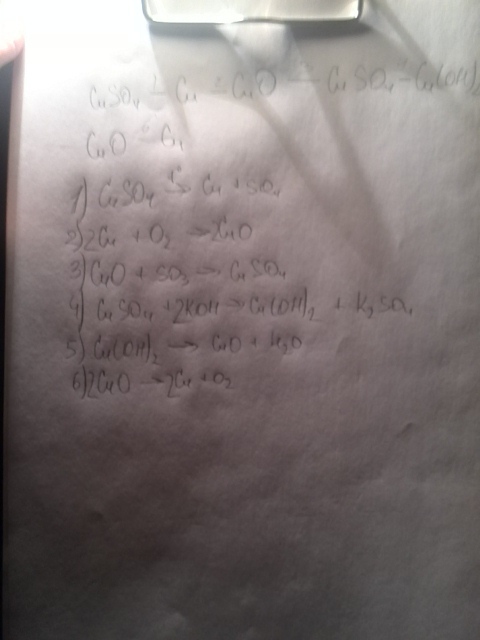 CuSO₄ 1– Cu 2– CuO 3– CuSO₄ – Cu(OH)₂
CuO 6– Cu
1) CuSO₄ t→ Cu + SO₄
2) 2Cu + O₂ → 2CuO
3) CuO + SO₃ → CuSO₄
4) CuSO₄ + 2KOH → Cu(OH)₂ + K₂SO₄
5) Cu(OH)₂ → CuO + H₂O
6) 2CuO → 2Cu + O₂